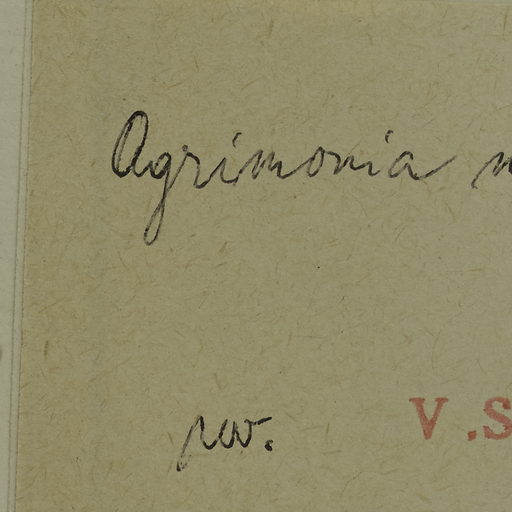 Agrimonia
rev.
V.S